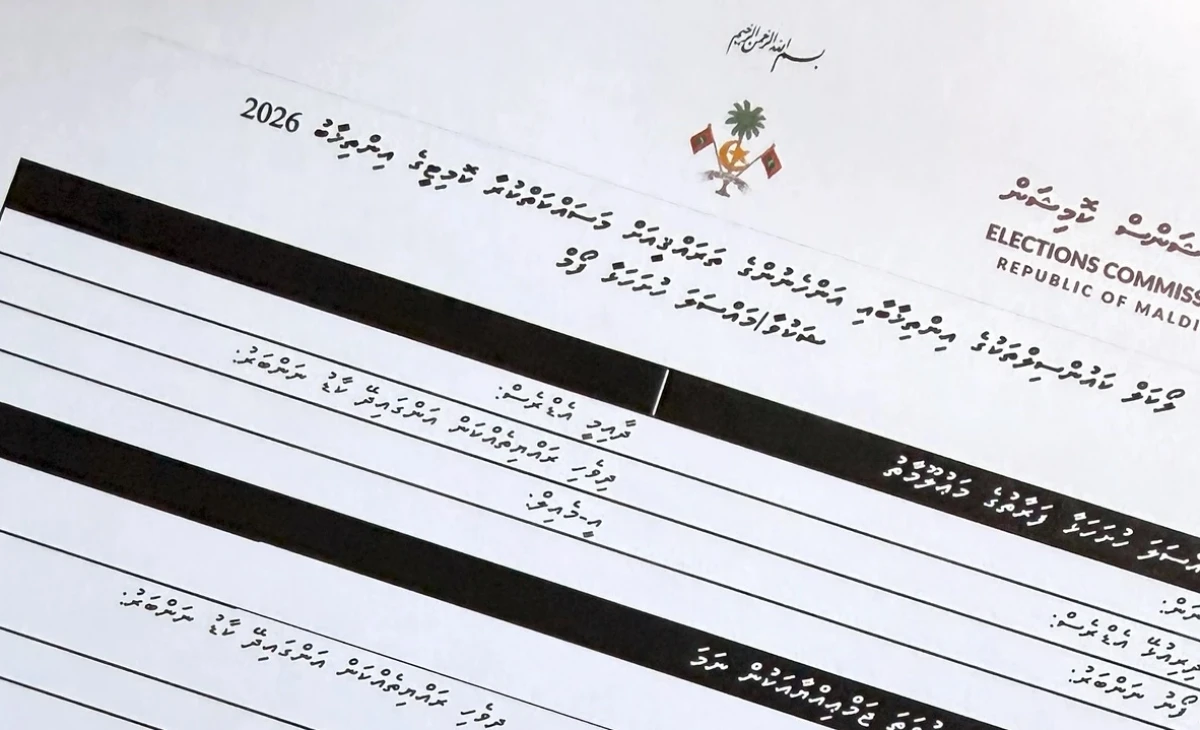 بسم الله الرحمن الرحيم
ޝަންސް ކޮމިޝަން
ELECTIONS COMMISS
REPUBLIC OF MALDI
ލޯކަލް ކައުންސިލްތަކުގެ އިންތިޚާބާއި އަންހެނުންގެ ތަރައްޤީއަށް މަސައްކަތްކުރާ ކޮމިޓީގެ އިންތިޚާބު 2026
ޝަކުވާ/މައްސަލަ ހުށަހަޅާ ފޯމް
އްސަލަ ހުށަހަޅާ ފަރާތުގެ މަޢުލޫމާތު
ނަން:
ދާއިމީ އެޑްރެސް:
ދިރިއުޅޭ އެޑްރެސް:
ދިވެހި ރައްޔިތެއްކަން އަންގައިދޭ ކާޑު ނަންބަރު:
ފޯނު ނަންބަރު:
އީ-މެއިލް:
ޖަމްޢިއްޔާއަކުން ނަމަ
ދިވެހި ރައްޔިތެއްކަން އަންގައިދޭ ކާޑު ނަންބަރު: